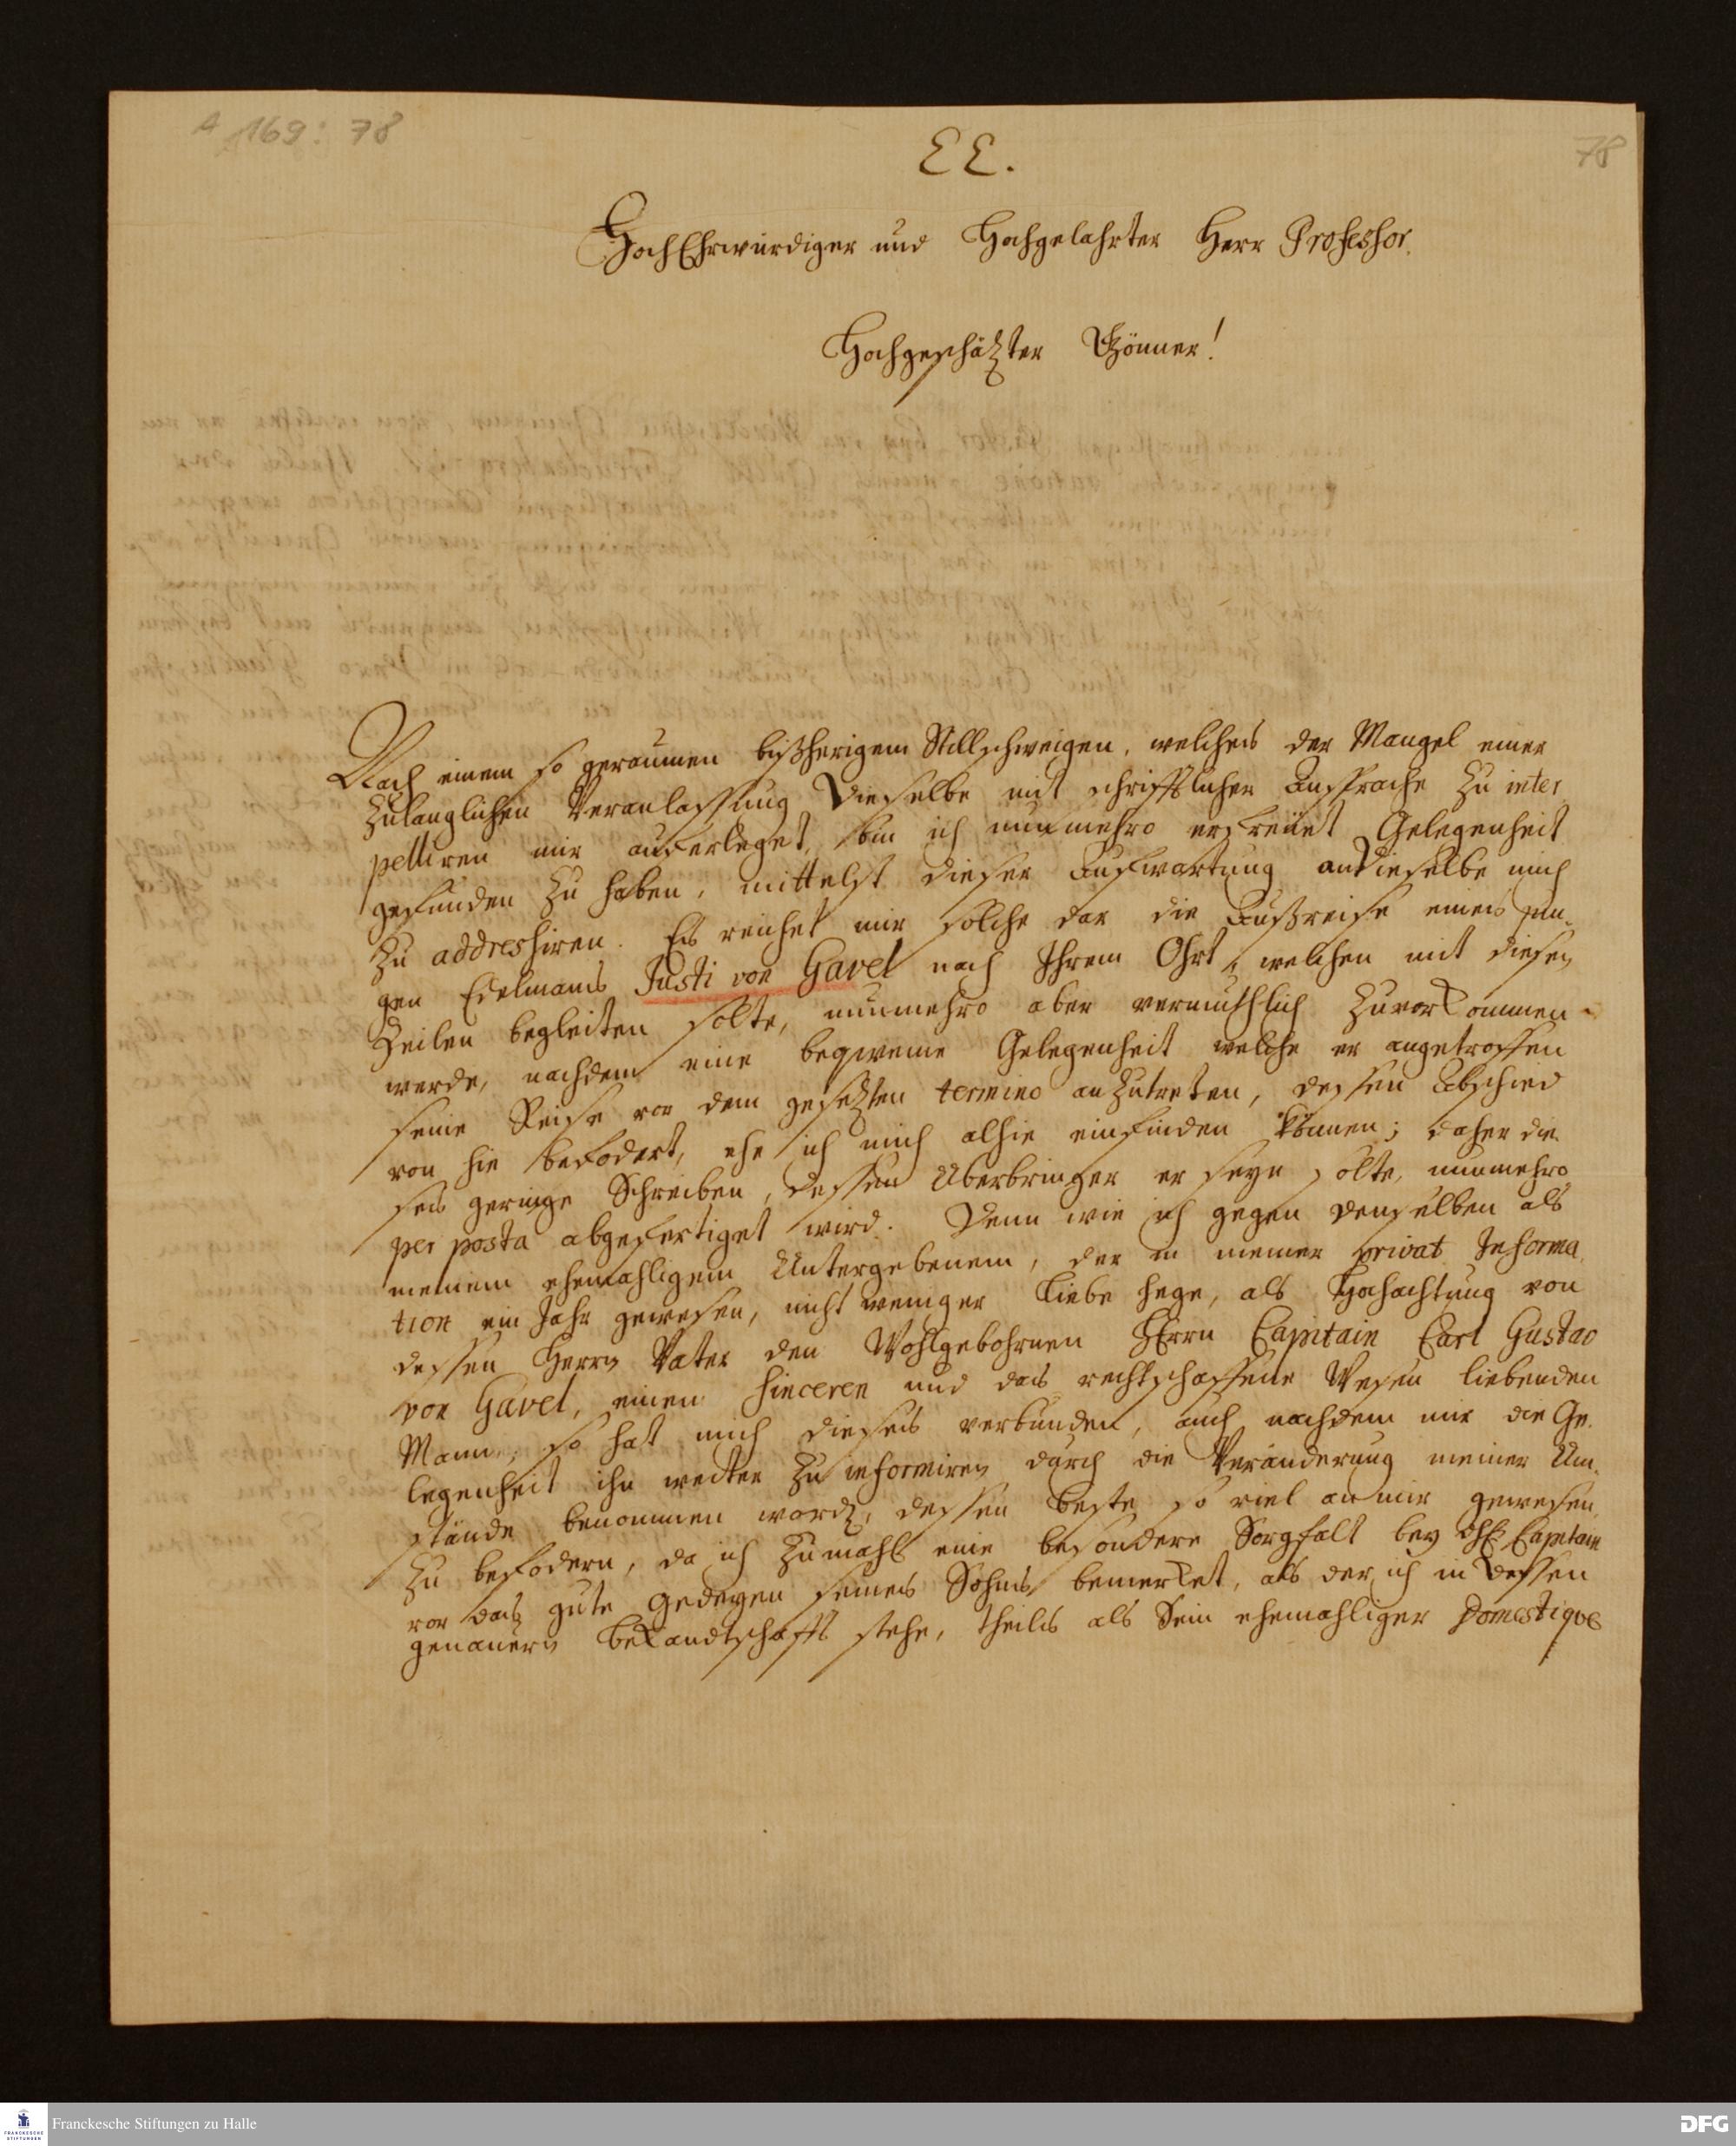 A 169: 78
78
EE.
HochEhrwürdiger und Hochgelahrter Herr Professor.
Hochgeschätzter Gönner!
Nach einem so geraumen bißherigem Stillschweigen, welches der Mangel einer
zulanglichen Veranlassung Dieselbe mit schrifftlicher Ansprache zu inter
pelliren mir auferleget, bin ich nunmehro erfreuet Gelegenheit
gefunden zu haben, mittelst dieser Aufwartung an Dieselbe mich
zu addressiren. Es reichet mir solche dar die Außreise eines jun-
gen Edelmans Justi von Gavel nach Ihrem Ohrt, welchen mit diesen
Zeilen begleiten solte, nunmehro aber vermuthlich zuvorkommen
werde, nachdem eine beqweme Gelegenheit welche er angetroffen
seine Reise vor dem gesetzten termino anzutreten, dessen Abschied
von hie befodert, ehe ich mich alhie einfinden können; daher die
ses geringe Schreiben, dessen Uberbringer er seyn solte, nunmehro
per posta abgefertiget wird. Denn wie ich gegen denselben als
meinem ehemahligem Untergebenem, der in meiner privat Informa
tion ein Jahr gewesen, nicht weniger Liebe hege, als Hochachtung von
dessen Herrn Vater den Wohlgebohrnen HErrn Capitain Carl Gustav
von Gavel, einen sinceren und das rechtschaffene Wesen liebenden
Mann, so hat mich dieses verbunden, auch nachdem mir die Ge-
legenheit ihn weiter zu informiren durch die Veränderung meiner Um-
stände benommen word, dessen beste so viel an mir gewesen
zu befodern, da ich zumahl eine besondere Sorgfalt bey Capitain
vor das gute Gedeyen seines Sohns bemerket, als der ich in dessen
genauern bekandtschafft stehe, theils als Sein ehemahliger Domestique
Franckesche Stiftungen zu Halle
FRANCKESCHE STIFTUNGEN
DFG